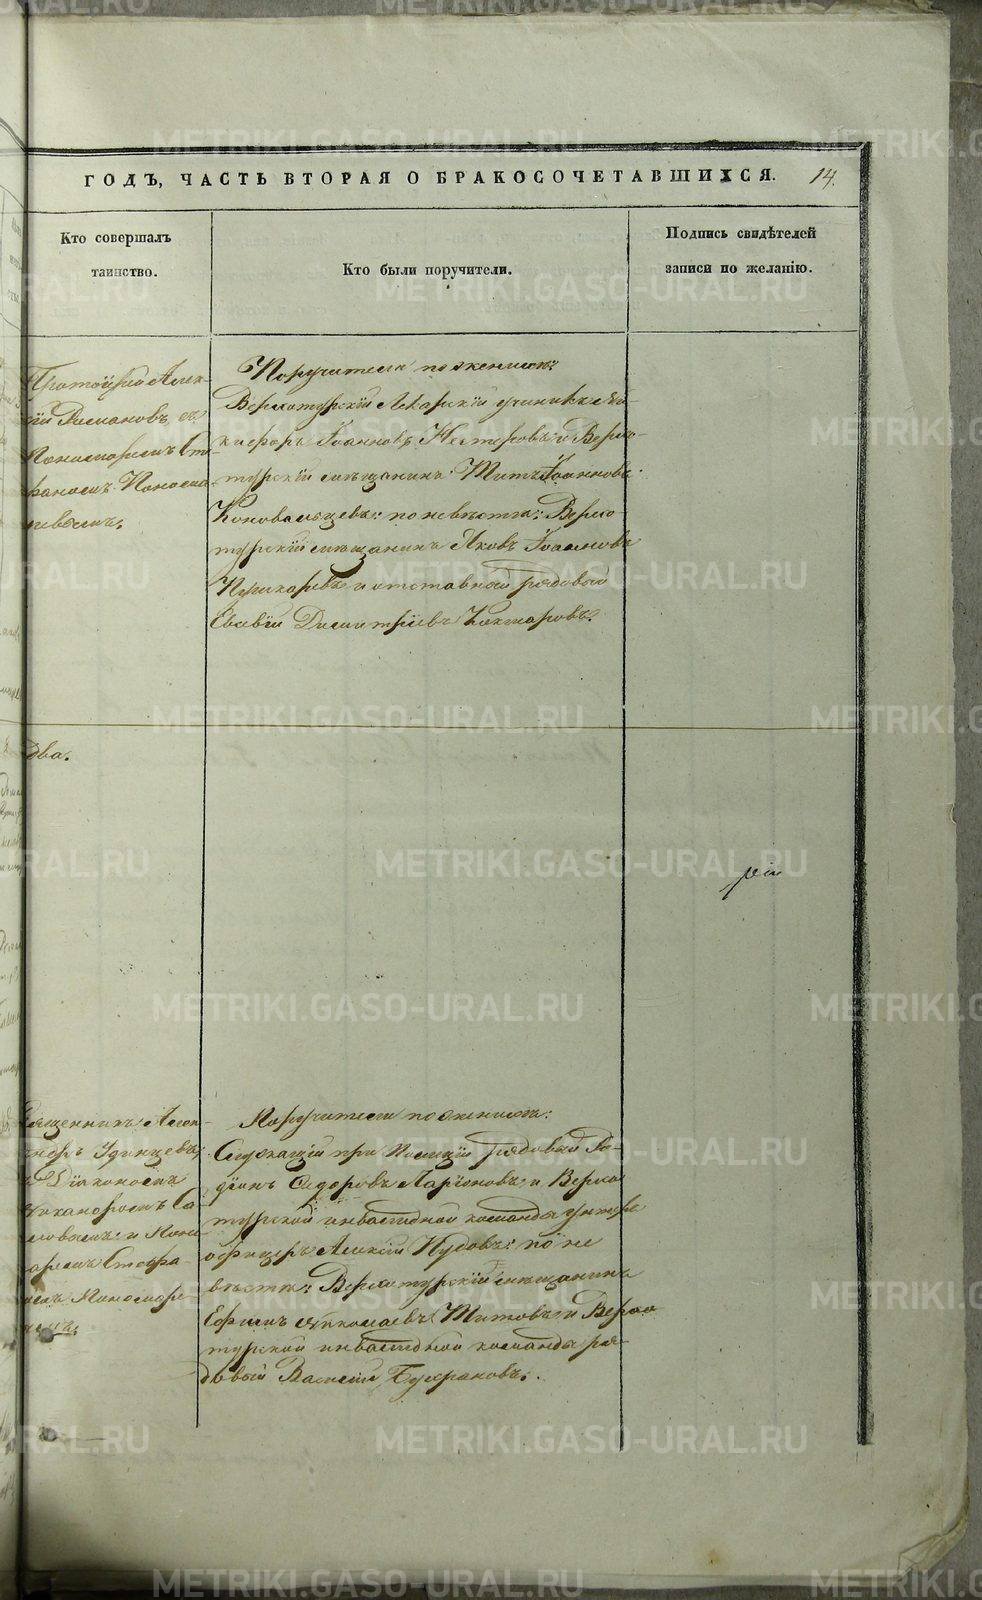 ГОДЪ, ЧАСТЬ ВТОРАЯ О БРАКОСОЧЕТАВШИХСЯ. 14.
Кто совершалъ
таинство.
Кто были поручители.
Подпись свидѣтелей
записи по желанію.
Протоіерей Алек-
сій Романовъ, съ
Пономаремъ Сте-
фаномъ Понома-
ревымъ.
Поручители по женихѣ:
Верхотурскій Лекарскій ученикъ Ни-
кифоръ Іоанновъ Нестеровъ и Верхо-
турскій мѣщанинъ Титъ Іоанновъ
Коновальцевъ; по невѣстѣ: Верхо-
турскій мѣщанинъ Яковъ Іоанновъ
и отставной рядовый
Евсевій Димитріевъ
два.
Священникъ Алек-
сандръ Удинцевъ
съ Діакономъ
Никаноромъ
и Поно-
маремъ Стефа-
номъ Пономаре-
вымъ.
Поручители по женихѣ:
Служащій при Полиціи рядовый Ро-
діонъ Сидоровъ Ларіоновъ и Верхо-
турской инвалидной команды унтеръ
офицеръ Алексій Иудовъ; по не-
вѣстѣ: Верхотурскій мѣщанинъ
Ефимъ Николаевъ Титовъ и Верхо-
турской инвалидной команды ря-
довый Василій
METRIKI.GASO-URAL.RU